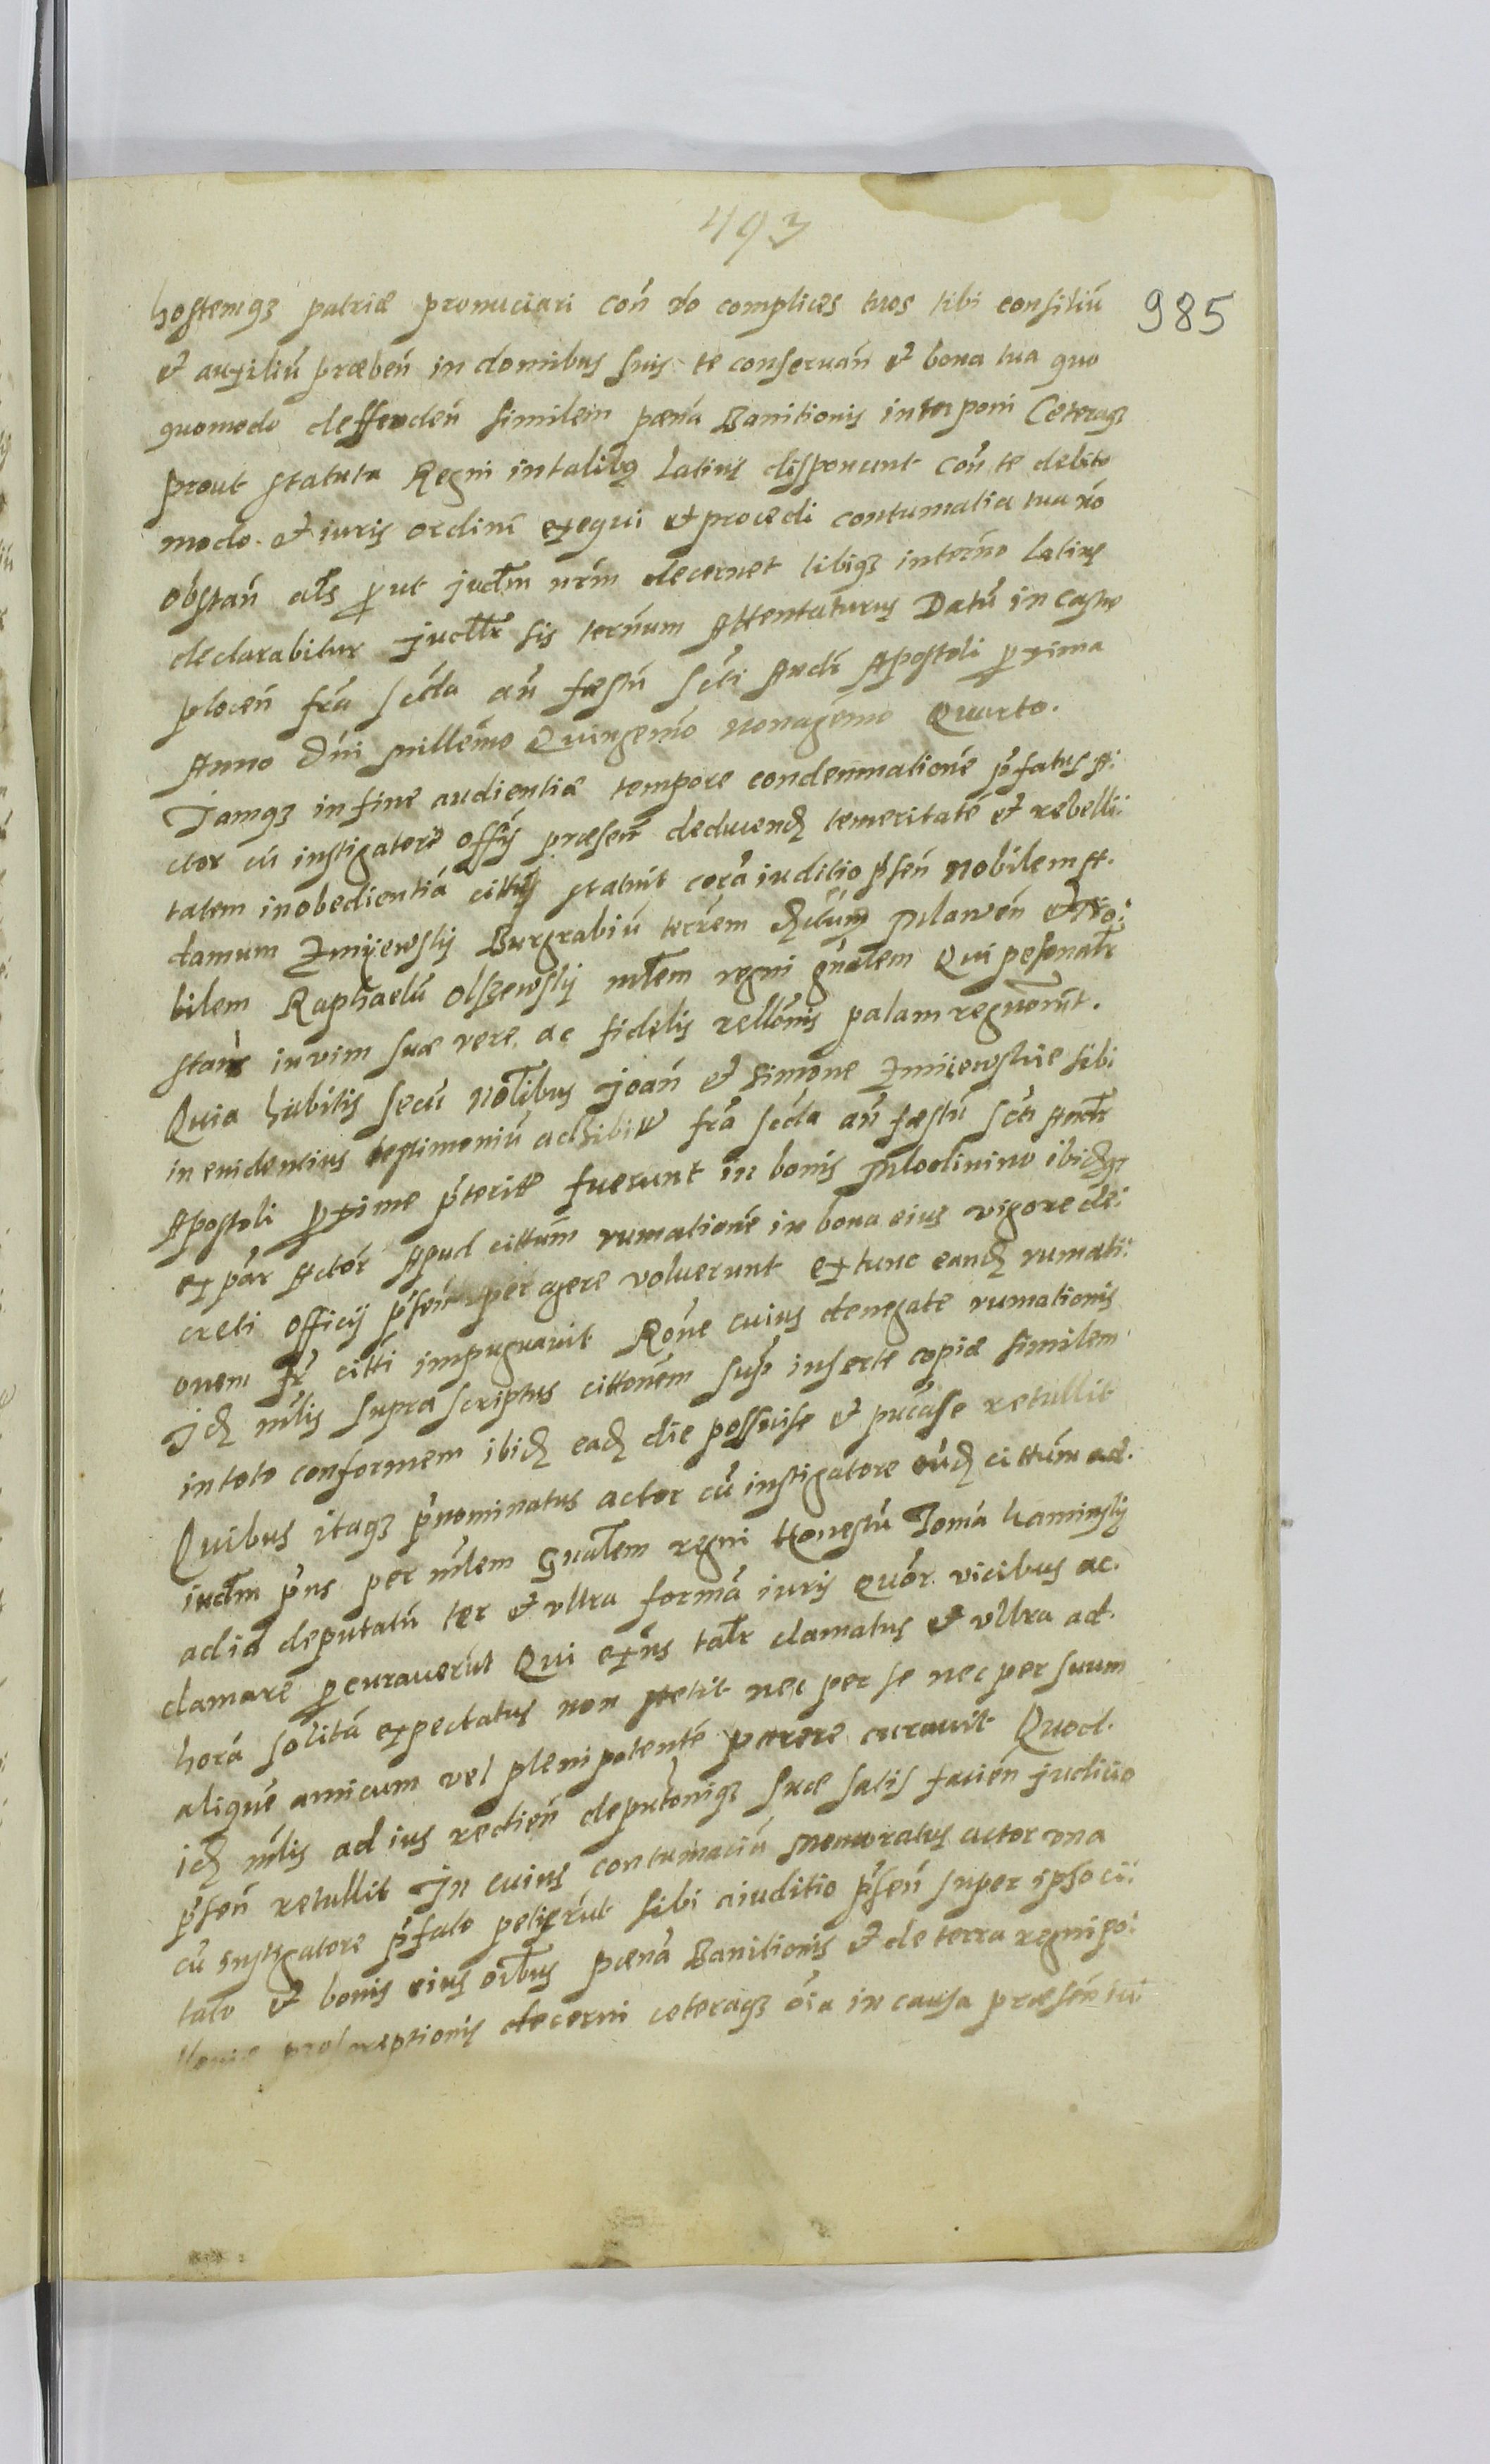 493
985
hostemqȝ patriæ pronuciari coń v́o complices tuos tibi consiliú
et auxiliú præbeń in domibus suis te conseruań et bona tua quo
quomodo deffendeń similem pæná Banitionis interponi Ceteraqȝ
prout statuta Regni in talibȝ latius disponunt coń te debito
modo et iuris ordine exequi et procedi contumatia tua nó
obstań als prout judm nrm decernet tibiqȝ in terḿno latius
declarabitur judlr sis terḿnum Attentaturus Datú in castro
plocen frá scda ań fæstú scti Andr Apostoli proxima
Anno Dńi millemo Quingemo nonagemo Quarto.
Jamqȝ in fine audientiæ tempore condemnatione pfatus A:
ctor cú instigatore offy præsen deducendȝ temeritaté et rebelli:
tatem inobedientiá citti statuit corá iuditio pseń Nobilem A.
damum Zmijewsky Burgrabiú terrem Mlaweń et No:
bilem Raphaelú Olszewsky mlem regni gnalem Qui pesonalr
stans in vim suæ vere ac fidelis rellonis palam regnoruńt.
Quia habitis secú Nolibus Joań et Simone Zmijewskie sibi
in euidentius testimoniú adhibitis frá scda ań fæstú scti Andr
Apostoli proxime pteritæ fuerunt in bonis Mlodinino ibidȝqȝ
ex par Actor Apud cittum rumatione in bona eius vigore de:
creti officij psen peragere voluerunt extunc eandȝ rumati:
onem fr citti impugnauit Roné cuius denegate rumationis
Jdȝ mlis supra scriptus cittonem sup inserte copiæ similem
in toto conformem ibidȝ eadȝ die possuisse et pucasse retullit
Quibus itaqȝ pnominatus actor cú instigatore eundȝ cittum ad
iudm pns per mlem Gnalem regni Honestú Tomá Kaminsky
ad id deputatú ter et vltra formá iuris Quor vicibus ac.
clamare procurauerút Qui exns talr clamatus et vltra ad.
horá solitá expectatus non stetit nec per se nec per suum
alique amicum vel plenipotenté parere curauit Quod.
idȝ mlis ad ius redień deputoniqȝ suæ satis facień judicio
pseń retullit In cuius contumatiú memoratus actor vna
cú instigatore pfato petierút sibi a iuditio pseń super ipso ci:
tato et bonis eius oibus pæná Banitionis et de terra regni po:
loniæ proscreptionis decerni ceteraqȝ óia in causa præseń iu: